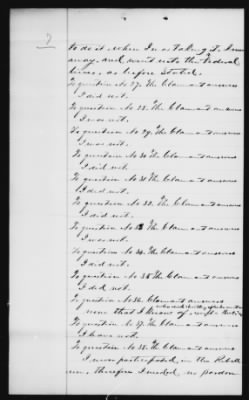 2
to do it when I was taking
away and went into the Federal
lines, as before stated.
To question No 27. The Claimant answers
I did not.
To question No 28. The Claimant answers
I was not.
To question No 29. The Claimant answers
I was not.
To question No 30 The Claimant answers
I did not.
To question No 31 The Claimant answers
I did not.
To question No 32. The Claimant answers
I did not.
To question No 33 The Claimant answers
I was not.
To question No 34. The Claimant answers
I did not.
To question No 35 The Claimant answers
I did not.
To question No 36. Claimant answers
none that I know of
To question No 37. The Claimant answers
I have not.
To question No 38. The Claimant answers
I never participated in the Rebell
ion, therefore I needed no pardon